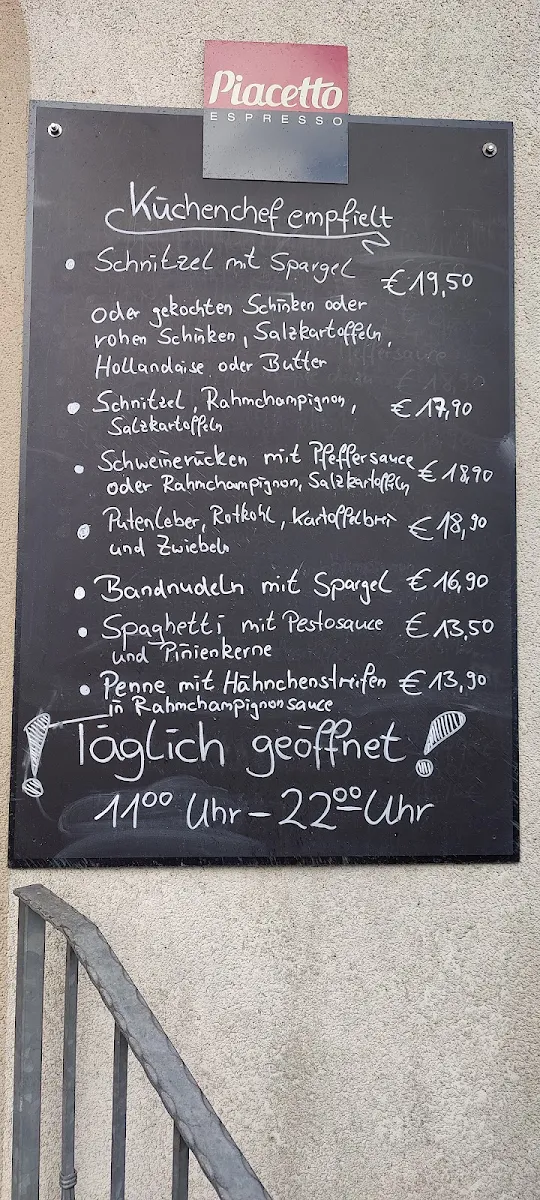 Piacetto
ESPRESSO
Küchenchef empfielt
• Schnitzel mit Spargel € 19,50
oder gekochten Schinken oder
rohen Schinken, Salzkartoffeln,
Hollandaise oder Butter
• Schnitzel, Rahmchampignon, € 17,90
Salzkartoffeln
• Schweinerücken mit Pfeffersauce € 18,90
oder Rahmchampignon, Salzkartoffeln
• Putenleber, Rotkohl, Kartoffelbrei € 18,90
und Zwiebeln
• Bandnudeln mit Spargel € 16,90
• Spaghetti mit Pestosauce € 13,50
und Pinienkerne
• Penne mit Hähnchenstreifen € 13,90
in Rahmchampignonsauce
! Täglich geöffnet !
11⁰⁰ Uhr - 22⁰⁰ Uhr